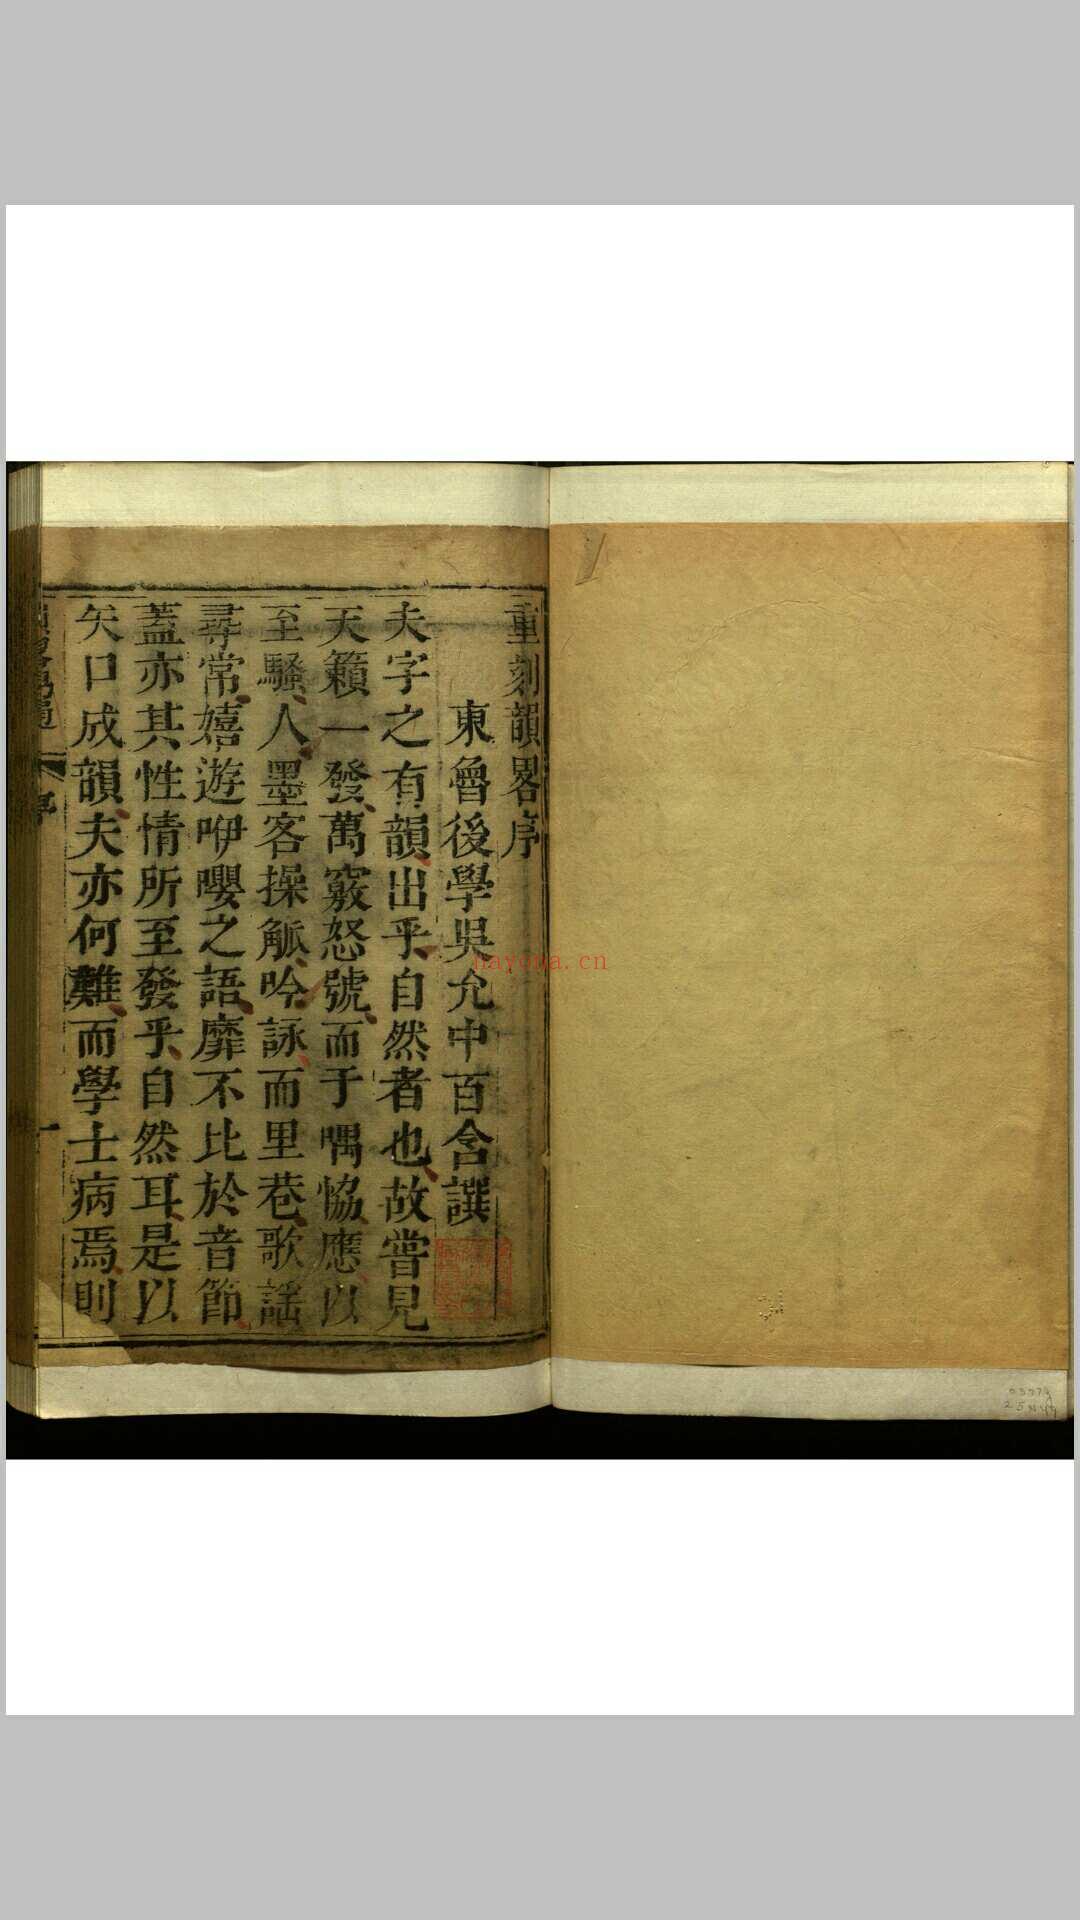 重刻韻畧序
東魯後學吳允中百含譔
夫字之有韻出乎自然者也故嘗見
天籟一發萬竅怒號而于喁恊應以
至騷人墨客操觚吟詠而里巷歌謡
尋常嬉遊咿嚶之語靡不比於音節
蓋亦其性情所至發乎自然耳是以
矢口成韻夫亦何難而學士病焉則
序
一
nayona.cn